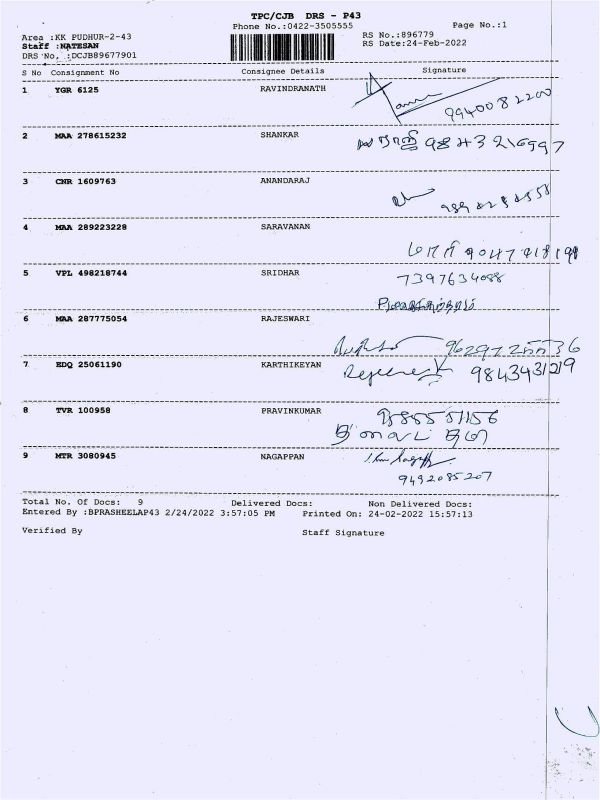 TPC/CJB DRS - P43
Phone No.:0422-3505555
Page No.:1
Area :KK PUDHUR-2-43
RS No.:896779
Staff :NATESAN
RS Date:24-Feb-2022
DRS No. :DCJB89677901
S No Consignment No Consignee Details Signature
1 YGR 6125 RAVINDRANATH
9940082200
2 MAA 278615232 SHANKAR
3 CNR 1609763 ANANDARAJ
4 MAA 289223228 SARAVANAN
5 VPL 498218744 SRIDHAR
7397634088
6 MAA 287775054 RAJESWARI
7 EDQ 25061190 KARTHIKEYAN
9843431219
8 TVR 100958 PRAVINKUMAR
9 MTR 3080945 NAGAPPAN
9492085207
Total No. Of Docs: 9 Delivered Docs: Non Delivered Docs:
Entered By :BPRASHEELAP43 2/24/2022 3:57:05 PM Printed On: 24-02-2022 15:57:13
Verified By Staff Signature